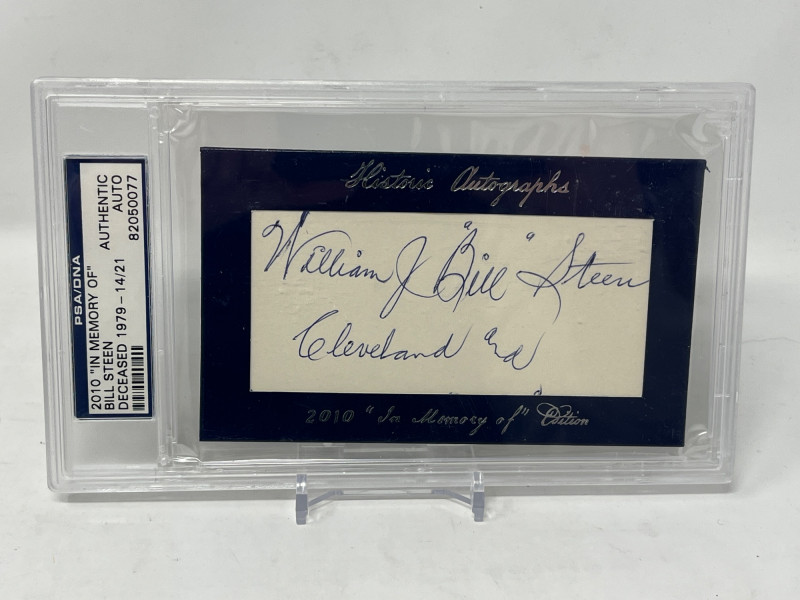 PSA/DNA
2010 "IN MEMORY OF"
BILL STEEN
DECEASED 1979 - 14/21
AUTHENTIC
AUTO
82050077
Historic Autographs
William J "Bill" Steen
Cleveland
2010 "In Memory of" Edition